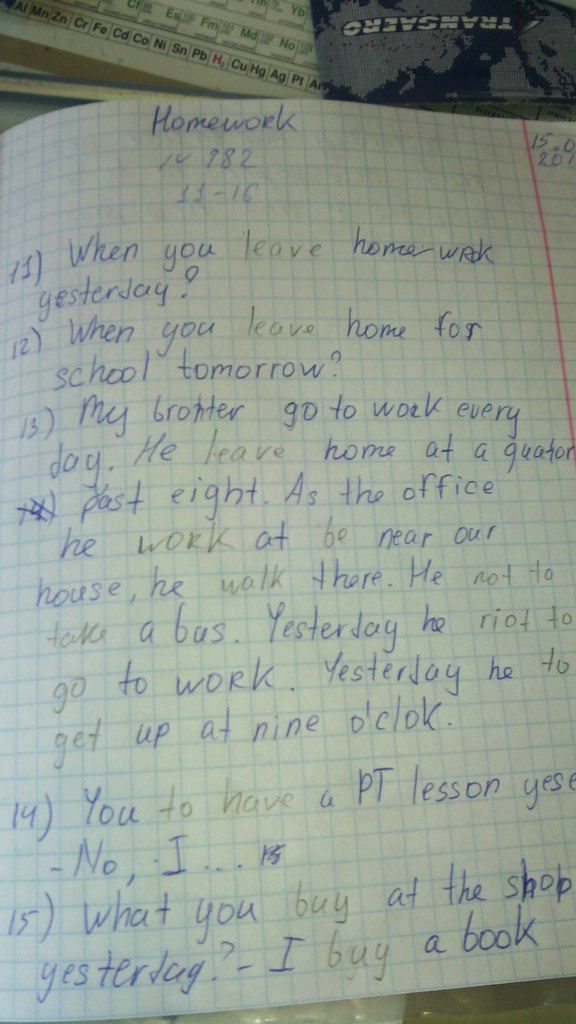 Yb
Cf Es Fm Md No
Al Mn Zn Cr Fe Cd Co Ni Sn Pb H₂ Cu Hg Ag Pt Au
TRANSAERO
Homework
№ 782
11-16
15.0
201
11) When you leave home wrk
yesterday?
12) When you leave home for
school tomorrow?
13) My brohter go to work every
day. He leave home at a quator
past eight. As the office
he work at be near our
house, he walk there. He not to
take a bus. Yesterday he not to
go to work. Yesterday he to
get up at nine o'clok.
14) You to have a PT lesson yese
- No, I ...
15) What you buy at the shop
yesterday? - I buy a book